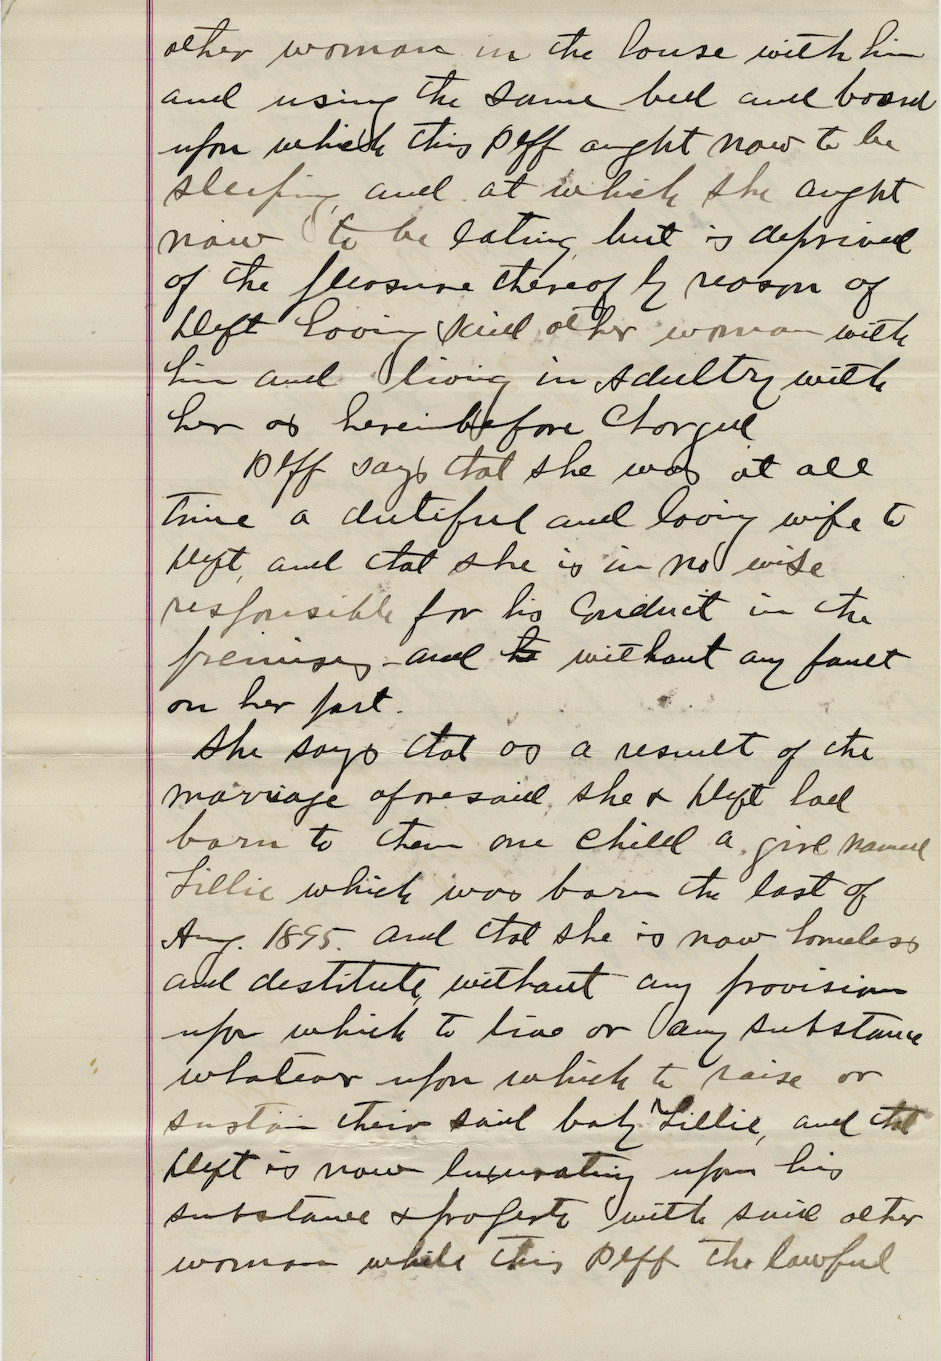 other woman in the house with him
and using the same bed and board
upon which this Plff aught now to be
sleeping, and at which she aught
now to be eating, but is deprived
of the pleasure thereof by reason of
Deft having said other woman with
him and living in Adultry with
her as hereinbefore Charged
Plff says that she was at all
time a dutiful and loving wife to
Deft, and that she is in no wise
responsible for his Conduct in the
premises - and is without any fault
on her part.
She says that as a result of the
marriage aforesaid, she & Deft had
born to them one child a girl named
Lillie which was born the last of
Aug. 1895. and that she is now homeless
and destitute, without any provision
upon which to live or any substance
whatever upon which to raise or
sustain their said baby Lillie, and that
Deft is now luxurating upon his
substance & property with said other
woman while this Plff the lawful